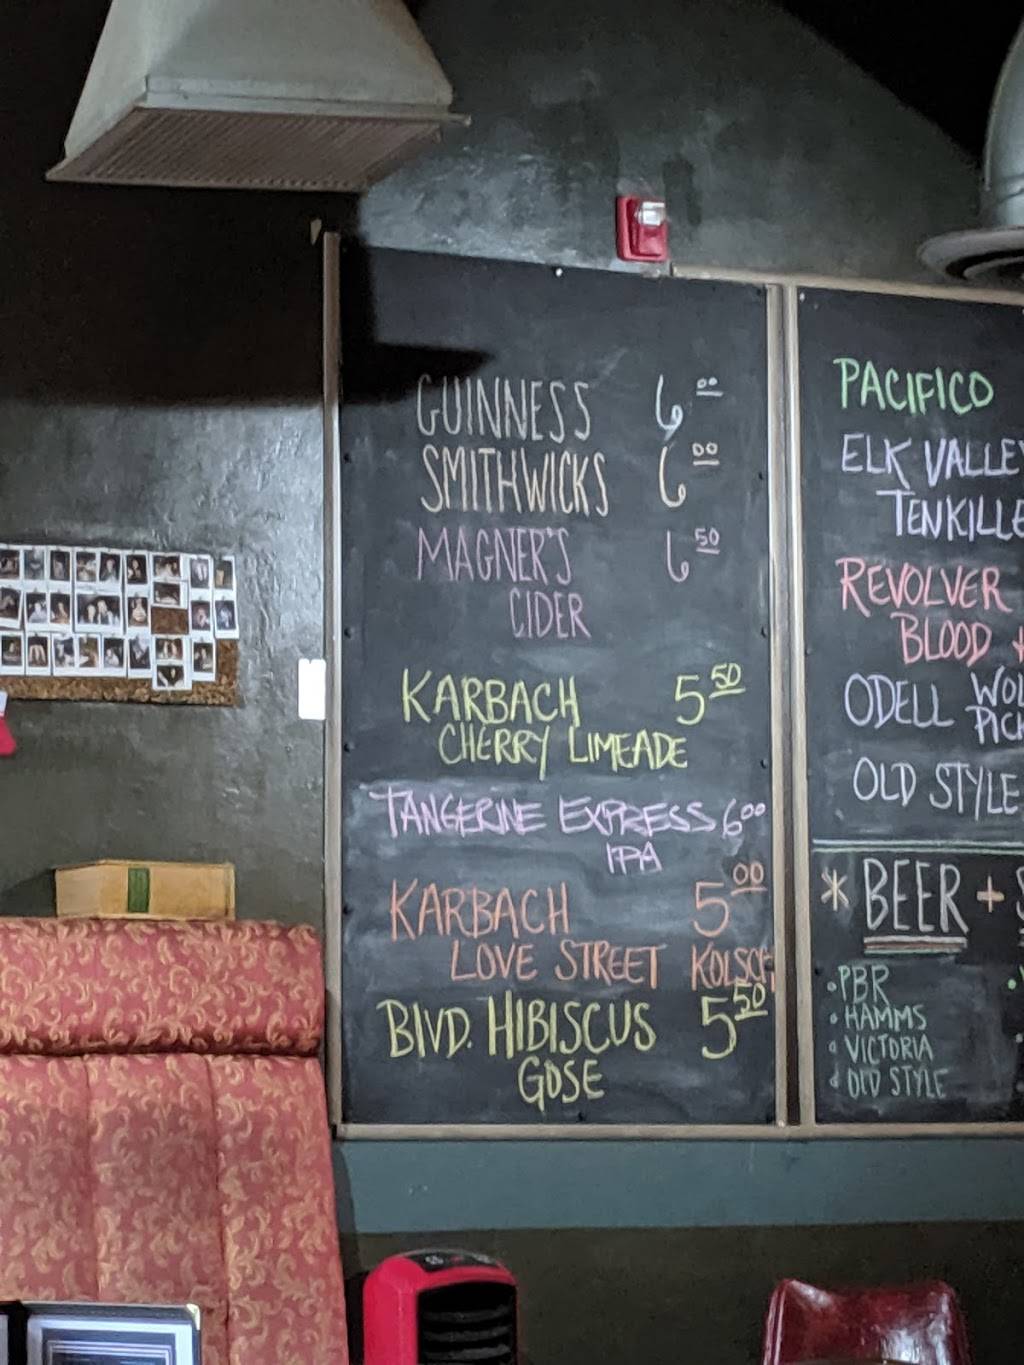 GUINNESS 6.00
SMITHWICKS 6.00
MAGNER'S 6.50
CIDER
KARBACH 5.50
CHERRY LIMEADE
TANGERINE EXPRESS 6.00
IPA
KARBACH 5.00
LOVE STREET KOLSCH
BLVD. HIBISCUS 5.50
GOSE
PACIFICO
ELK VALLEY
TENKILLE
REVOLVER
BLOOD +
ODELL WOL
PICK
OLD STYLE
* BEER + S
• PBR
• HAMMS
• VICTORIA
• OLD STYLE